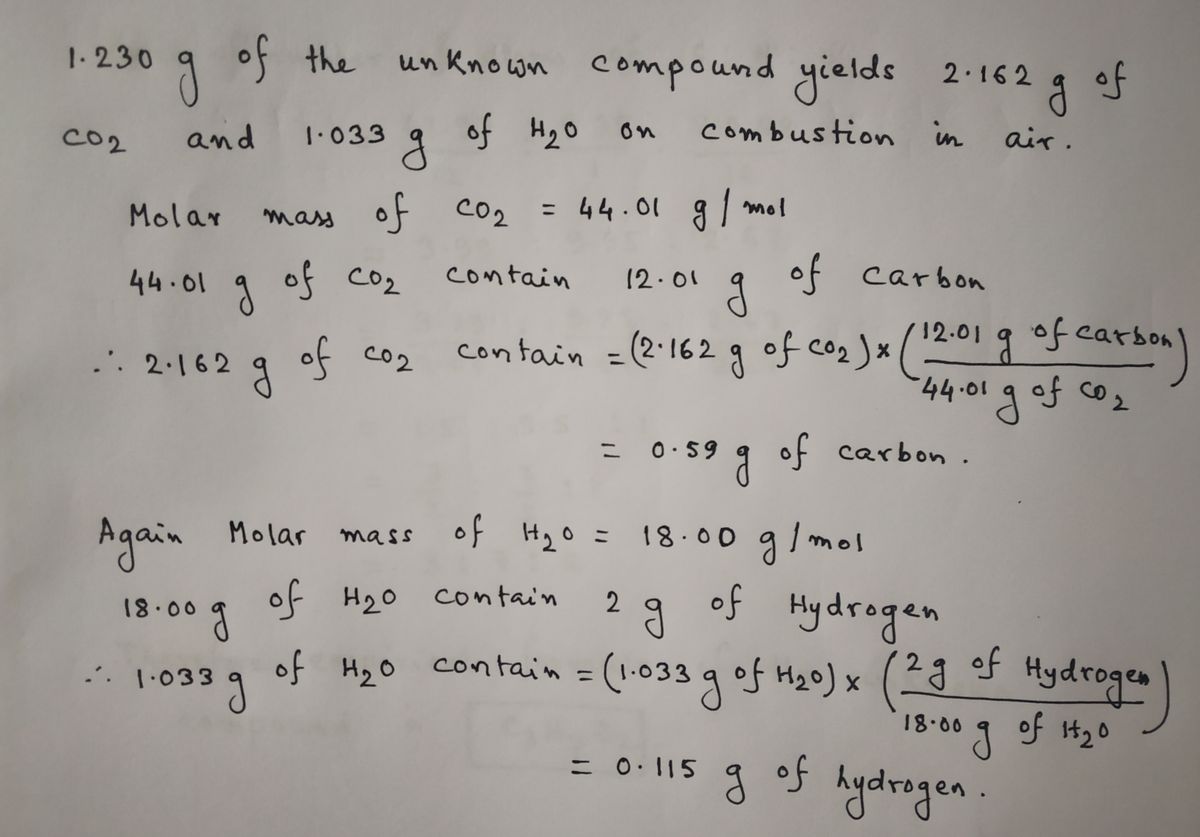 1.230 g of the unknown compound yields 2.162 g of
CO2 and 1.033 g of H2O on combustion in air.
Molar mass of CO2 = 44.01 g / mol
44.01 g of CO2 contain 12.01 g of carbon
∴ 2.162 g of CO2 contain = (2.162 g of CO2) × (12.01 g of carbon / 44.01 g of CO2)
= 0.59 g of carbon.
Again Molar mass of H2O = 18.00 g / mol
18.00 g of H2O contain 2 g of Hydrogen
∴ 1.033 g of H2O contain = (1.033 g of H2O) × (2 g of Hydrogen / 18.00 g of H2O)
= 0.115 g of hydrogen.